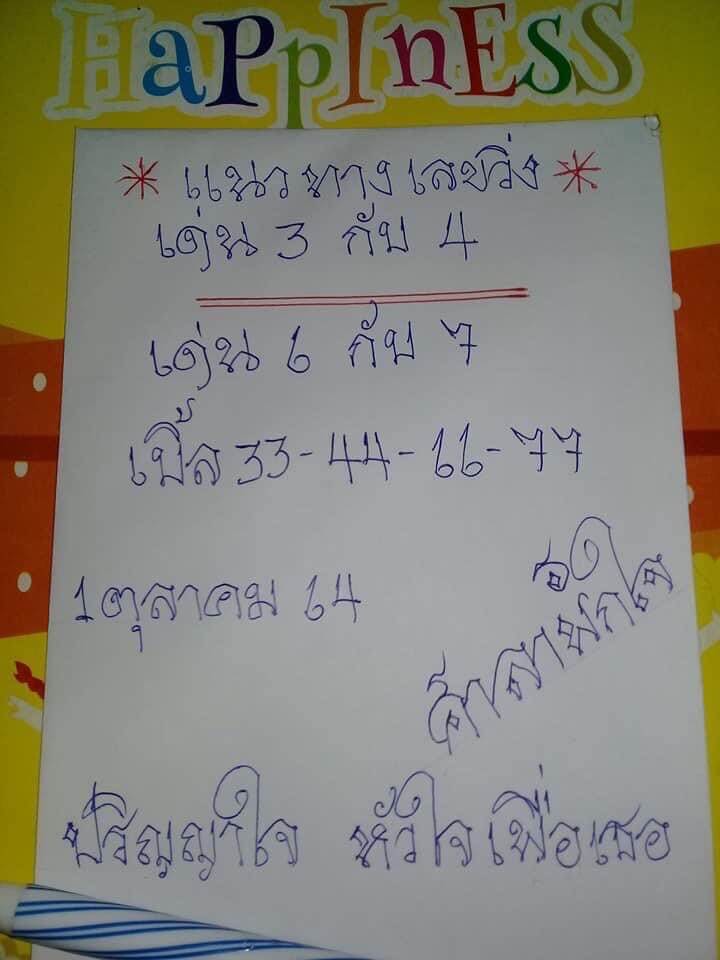 HaPpInEsS
* แนวทางเลขวิ่ง *
เด่น 3 กับ 4
เด่น 6 กับ 7
เบิ้ล 33-44-66-77
1 ตุลาคม 64
ศาลาพักใจ
ปริญญาใจ หัวใจเพื่อเธอ